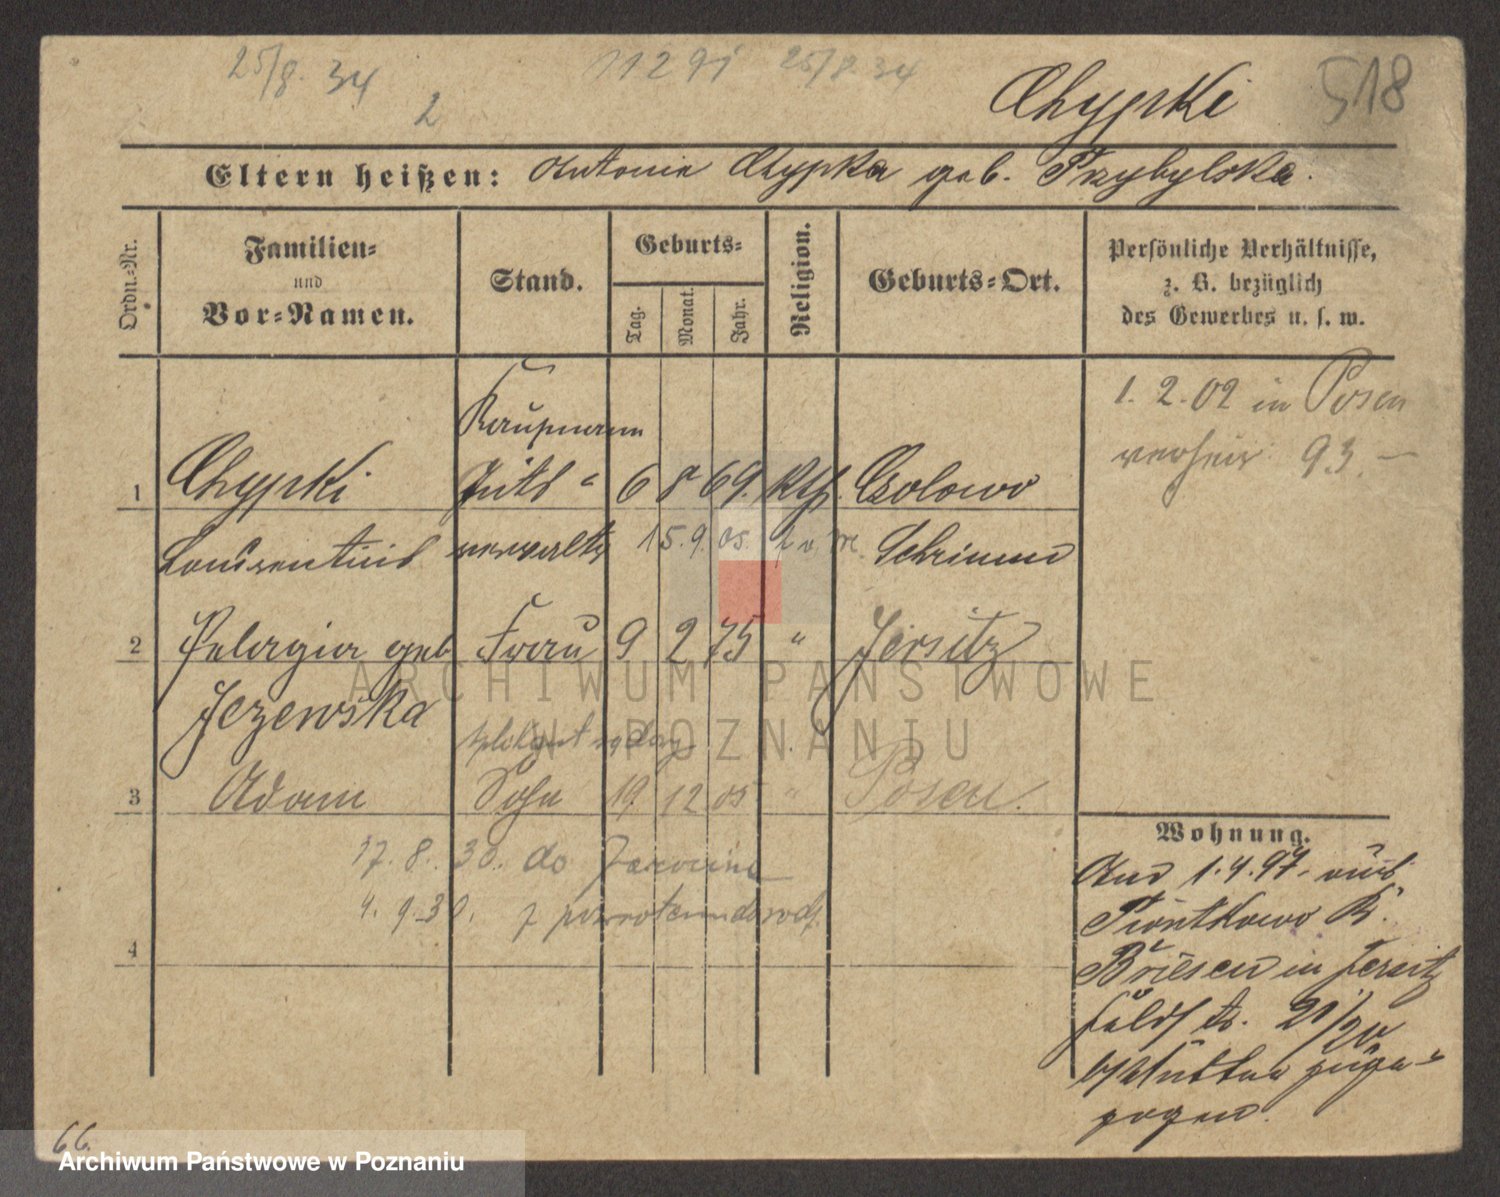 25/8. 34 11291 25/8 34
2
Chypki 518
Eltern heißen: Antonie Chypka geb. Przybylska.
Ordn.-Nr.
Familien-
und
Vor-Namen.
Stand.
Geburts-
Tag.
Monat.
Jahr.
Religion.
Geburts-Ort.
Persönliche Verhältnisse,
z. B. bezüglich
des Gewerbes u. s. w.
1. 2. 02 in Posen
verheir. 93. —
Kaufmann
1 Chypki Guts- 6 8 69. Kth. Czolowo
Laurentius verwalter 15. 9. 05. Schrimm
2 Pelagia geb Frau 9 2 75 " Jersitz
Jezewska
3 Adam Sohn 19. 12 05 " Posen.
17. 8. 30. do Jarocina
4. 9. 30. z powrotem
4
Wohnung.
And 1. 4. 97. aus
Piontkowo Kr.
Briesen in Jersitz
Feldstr. 21/20
b/Mutter zuge-
zogen.
66.
ARCHIWUM PAŃSTWOWE
W POZNANIU
Archiwum Państwowe w Poznaniu